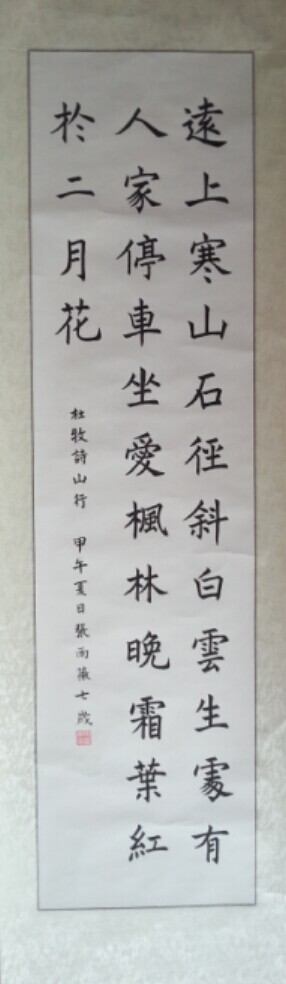 遠上寒山石徑斜白雲生處有
人家停車坐愛楓林晚霜葉紅
於二月花
杜牧詩山行 甲午夏日張雨薇七歲